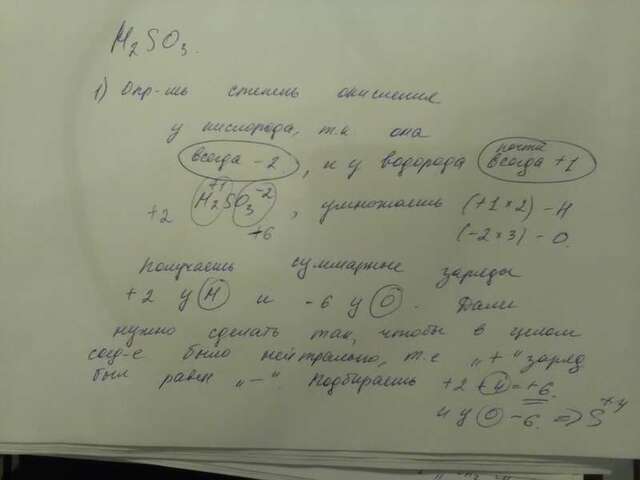 H₂SO₃.
1) Опр-шь степень окисления
у кислорода, т.к она
всегда -2, и у водорода почти всегда +1
+1 -2
+2 H₂SO₃, умножаешь (+1×2) - H
+6 (-2×3) - O.
Получаешь суммарные заряды
+2 у H и -6 у O. Далее
нужно сделать так, чтобы в целом
соед-е было нейтрально, т.е „+“ заряд
был равен „-“. Подбираешь +2 +4 = +6
и у O -6. => S⁺⁴